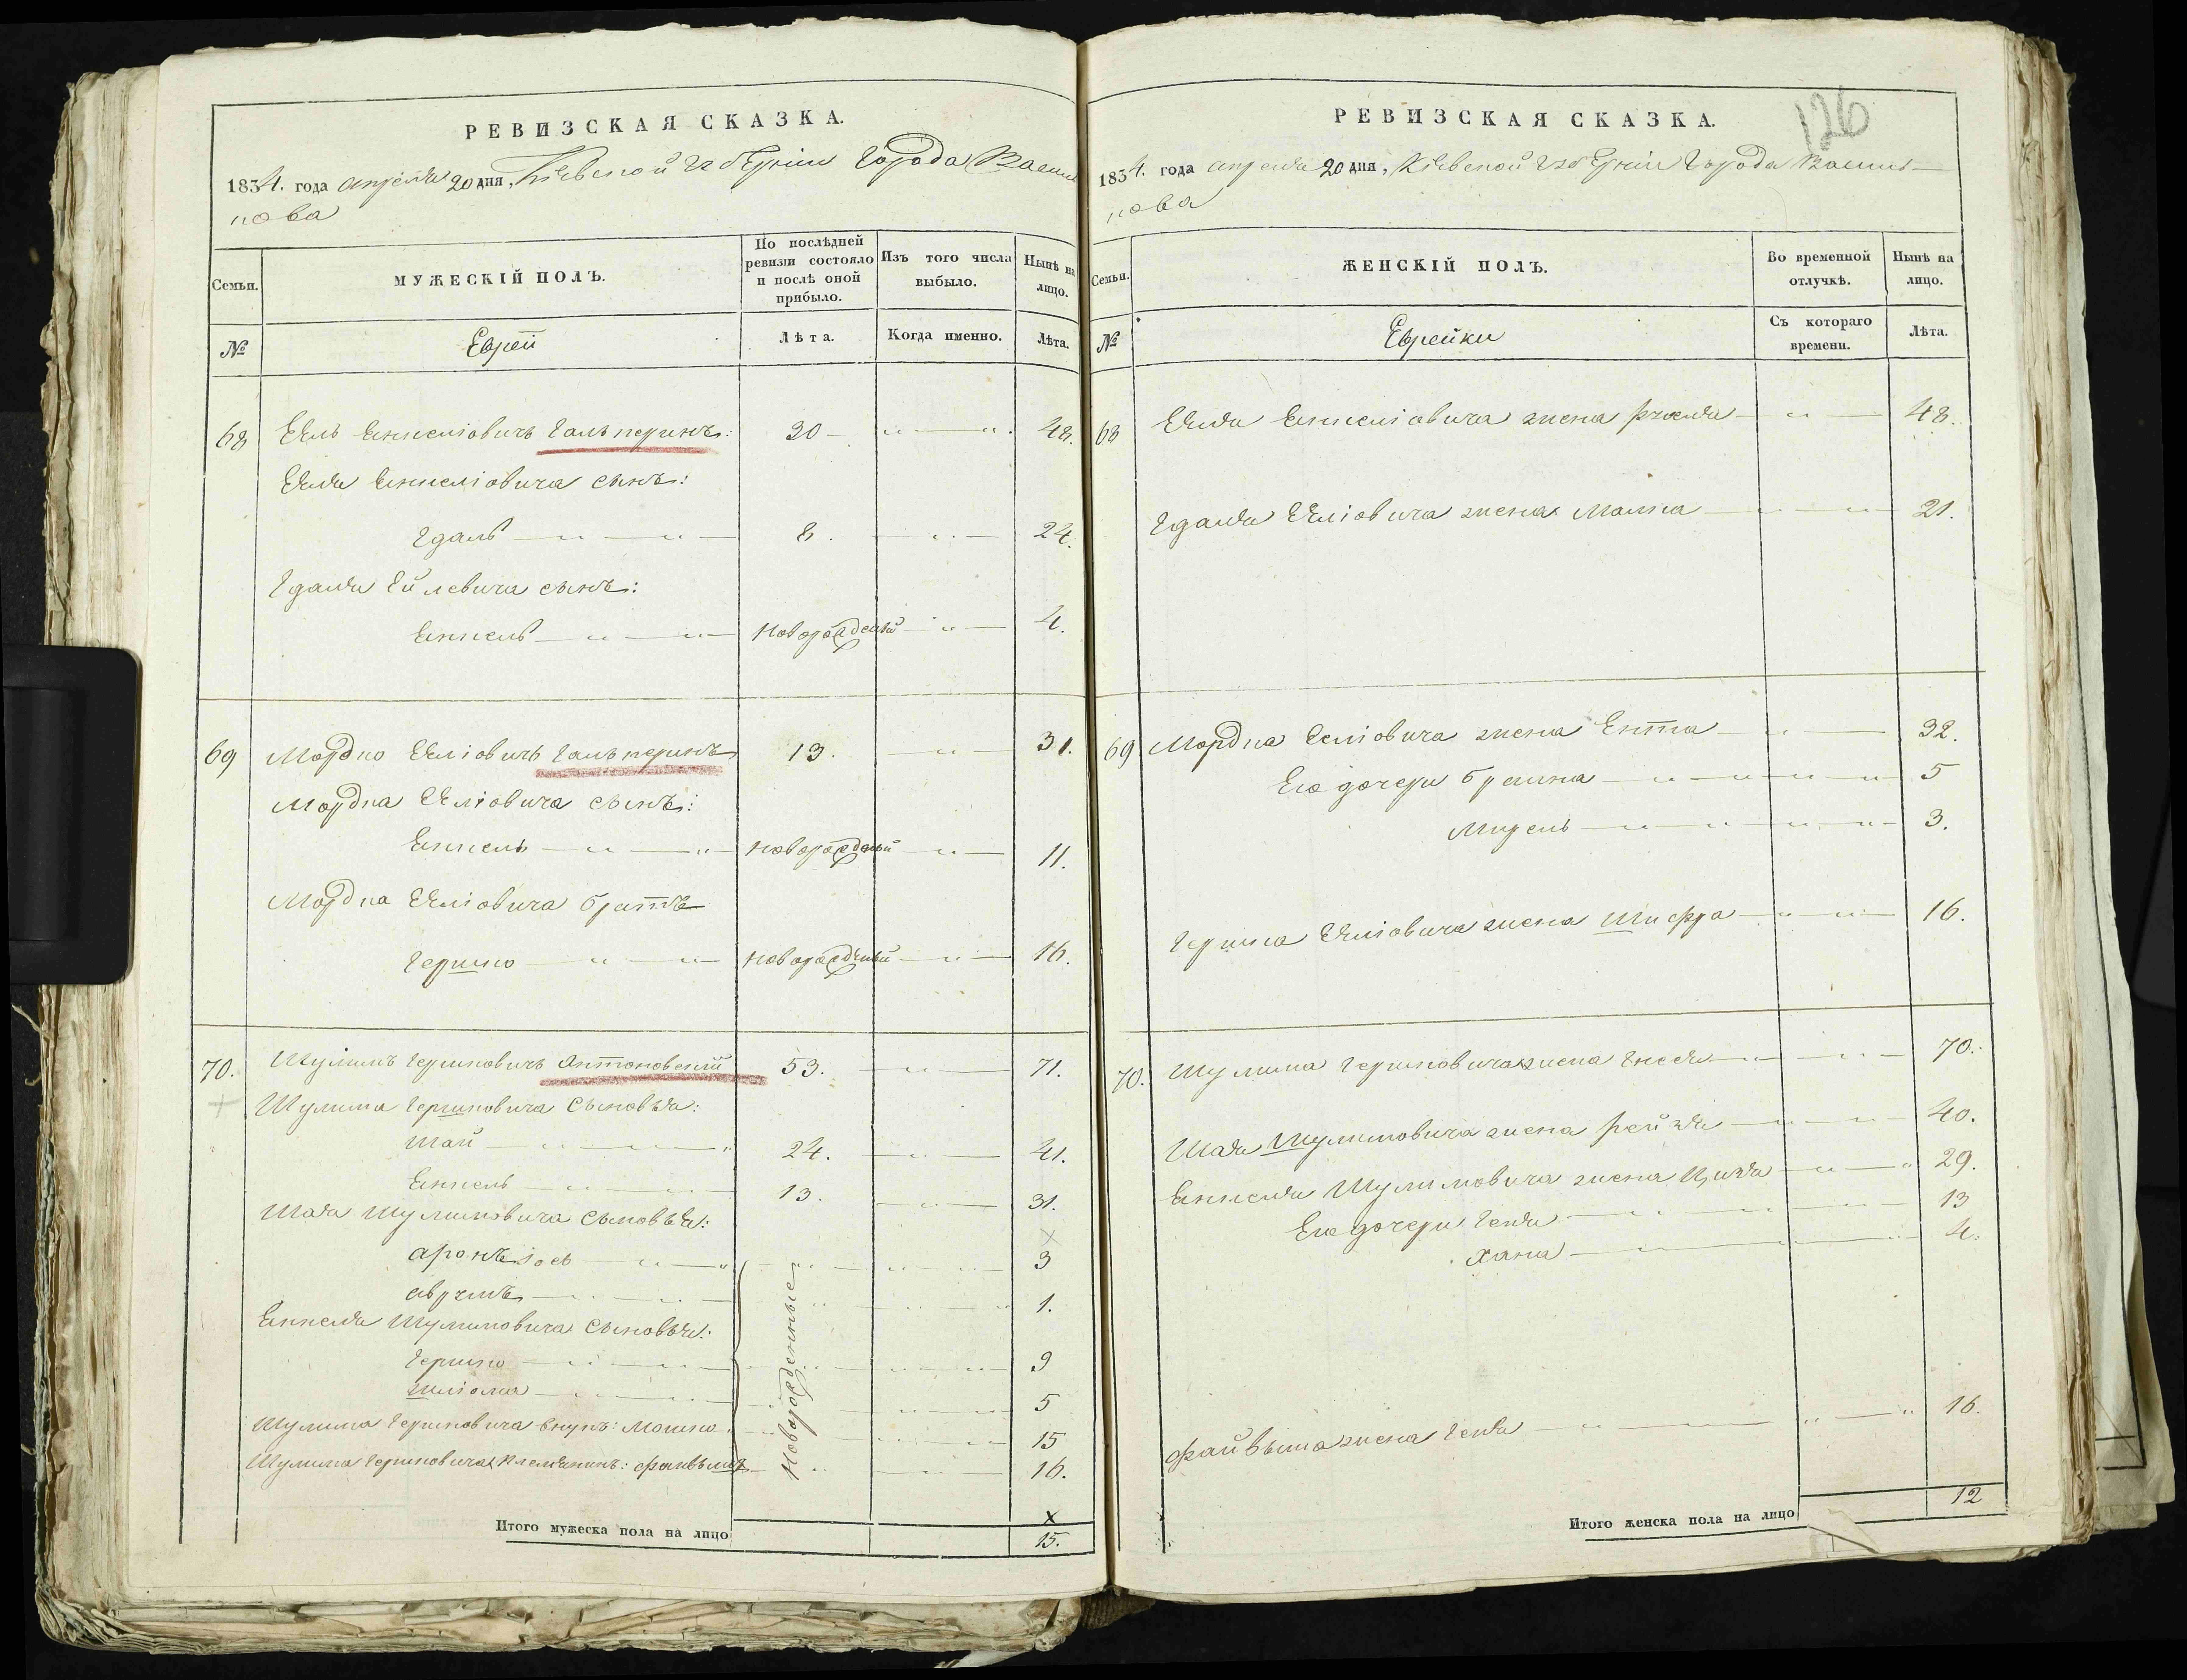 РЕВИЗСКАЯ СКАЗКА.
1834. года апреля 20 дня, Кіевской губерніи города Василь
кова
Семьи.
МУЖЕСКІЙ ПОЛЪ.
По послѣдней ревизіи состояло и послѣ оной прибыло.
Изъ того числа выбыло.
Нынѣ на лицо.
№
Еврей
Лѣта.
Когда именно.
Лѣта.
68 Ейль Енкеліовичъ Гальперинъ: 30 48.
Ейля Енкеліовича сынъ:
Гдаль 8. 24.
Гдаля Ейлевича сынъ:
Енкель новорожденый 4.
69 Мордко Ейліовичъ Гальперинъ 13. 31.
Мордка Ейліовича сынъ:
Енкель новорожденый 11.
Мордка Ейліовича братъ
Гершко новорожденый 16.
70. Шулимъ Гершковичъ Антоновский 53. 71.
Шулима Гершковича сыновья:
Шай 24. 41.
Енкель 13. 31.
Шая Шулимовича сыновья:
Аронъ Іось 3
Аврумъ 1.
Енкеля Шулимовича сыновья:
Гершко 9
Шліома 5
Шулима Гершковича внукъ: Мошко 15
Шулима Гершковича племянникъ: Файвышъ 16.
Новорожденные
Итого мужеска пола на лицо
15.
126
РЕВИЗСКАЯ СКАЗКА.
1834. года апреля 20 дня, Кіевской губерніи города Василь-
кова
Семьи.
ЖЕНСКІЙ ПОЛЪ.
Во временной отлучкѣ.
Нынѣ на лицо.
№
Еврейки
Съ котораго времени.
Лѣта.
68 Ейля Енкеліовича жена Рухля 48.
Гдаля Ейліовича жена Малка 21.
69 Мордка Ейліовича жена Ента 32.
Его дочери Браина 5
Мирель 3.
Гершка Ейліовича жена Шифра 16.
70. Шулима Гершковича жена Гнеся 70.
Шая Шулимовича жена Рейзя 40.
Енкеля Шулимовича жена Цизя 29.
Его дочери Геня 13
Хана 4.
Файвыша жена Геня 16.
Итого женска пола на лицо
12